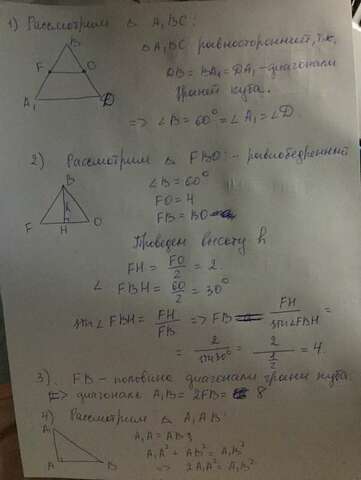 1) Рассмотрим △ A₁BC:
B
F O
A₁ D
△ A₁BC равносторонний, т.к.
DB = BA₁ = DA₁ - диагонали
граней куба.
=> ∠B = 60° = ∠A₁ = ∠D
2) Рассмотрим △ FBO: - равнобедренный
B
h
F H O
∠B = 60°
FO = 4
FB = BO
Проведем высоту h
FH = FO/2 = 2.
∠ FBH = 60/2 = 30°
sin∠FBH = FH/FB => FB = FH/sin∠FBH =
= 2/sin30° = 2/(1/2) = 4.
3). FB - половина диагонали грани куба.
=> диагональ A₁B = 2FB = 8
4) Рассмотрим △ A₁AB:
A₁
A B
A₁A = AB
A₁A² + AB² = A₁B²
=> 2A₁A² = A₁B²